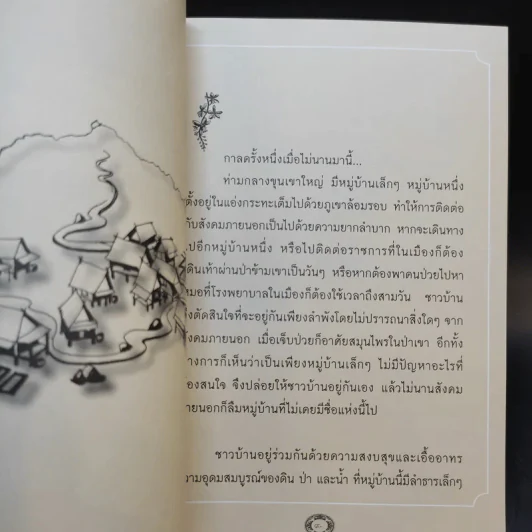 กาลครั้งหนึ่งเมื่อไม่นานมานี้...
ท่ามกลางขุนเขาใหญ่ มีหมู่บ้านเล็กๆ หมู่บ้านหนึ่ง
ตั้งอยู่ในแอ่งกระทะเต็มไปด้วยภูเขาล้อมรอบ ทำให้การติดต่อ
กับสังคมภายนอกเป็นไปด้วยความยากลำบาก หากจะเดินทาง
ไปอีกหมู่บ้านหนึ่ง หรือไปติดต่อราชการที่ในเมืองก็ต้อง
เดินเท้าผ่านป่าข้ามเขาเป็นวันๆ หรือหากต้องพาคนป่วยไปหา
หมอที่โรงพยาบาลในเมืองก็ต้องใช้เวลาถึงสามวัน ชาวบ้าน
ตัดสินใจที่จะอยู่กันเพียงลำพังโดยไม่ปรารถนาสิ่งใดๆ จาก
สังคมภายนอก เมื่อเจ็บป่วยก็อาศัยสมุนไพรในป่าเขา อีกทั้ง
ทางการก็เห็นว่าเป็นเพียงหมู่บ้านเล็กๆ ไม่มีปัญหาอะไรที่
ต้องสนใจ จึงปล่อยให้ชาวบ้านอยู่กันเอง แล้วไม่นานสังคม
ภายนอกก็ลืมหมู่บ้านที่ไม่เคยมีชื่อแห่งนี้ไป
ชาวบ้านอยู่ร่วมกันด้วยความสงบสุขและเอื้ออาทร
ความอุดมสมบูรณ์ของดิน ป่า และน้ำ ที่หมู่บ้านนี้มีลำธารเล็กๆ